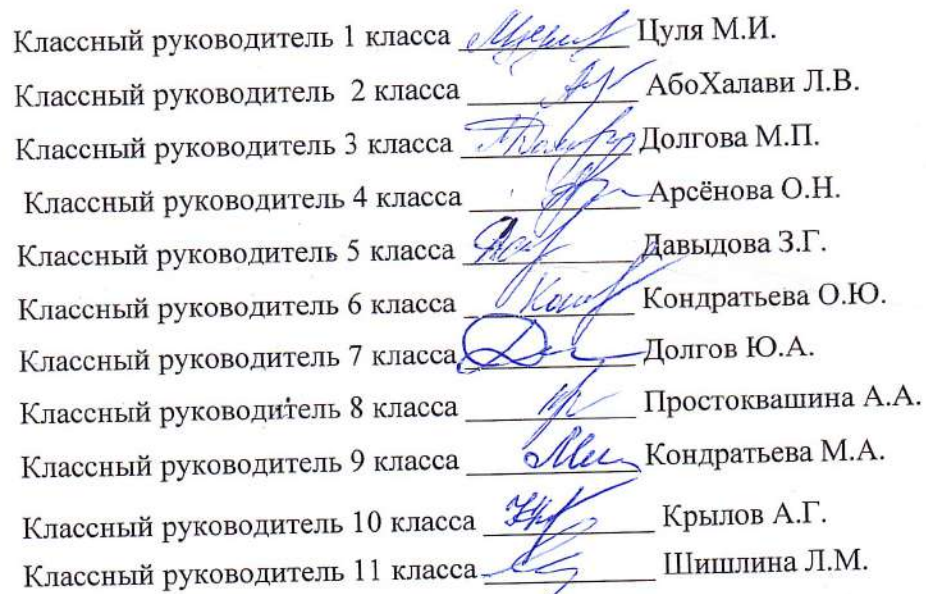 Классный руководитель 1 класса Цуля М.И.
Классный руководитель 2 класса АбоХалави Л.В.
Классный руководитель 3 класса Долгова М.П.
Классный руководитель 4 класса Арсёнова О.Н.
Классный руководитель 5 класса Давыдова З.Г.
Классный руководитель 6 класса Кондратьева О.Ю.
Классный руководитель 7 класса Долгов Ю.А.
Классный руководитель 8 класса Простоквашина А.А.
Классный руководитель 9 класса Кондратьева М.А.
Классный руководитель 10 класса Крылов А.Г.
Классный руководитель 11 класса Шишлина Л.М.